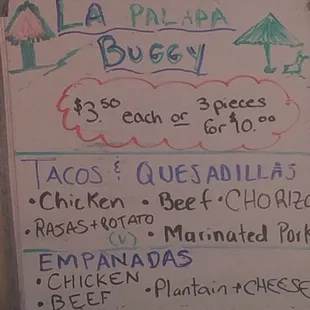 LA PALAPA
BUGGY
$3.50 each or 3 pieces for $10.00
TACOS & QUESADILLAS
• Chicken • Beef • CHORIZO
• RAJAS + POTATO (V) • Marinated Pork
EMPANADAS
• CHICKEN
• BEEF • Plantain + CHEESE